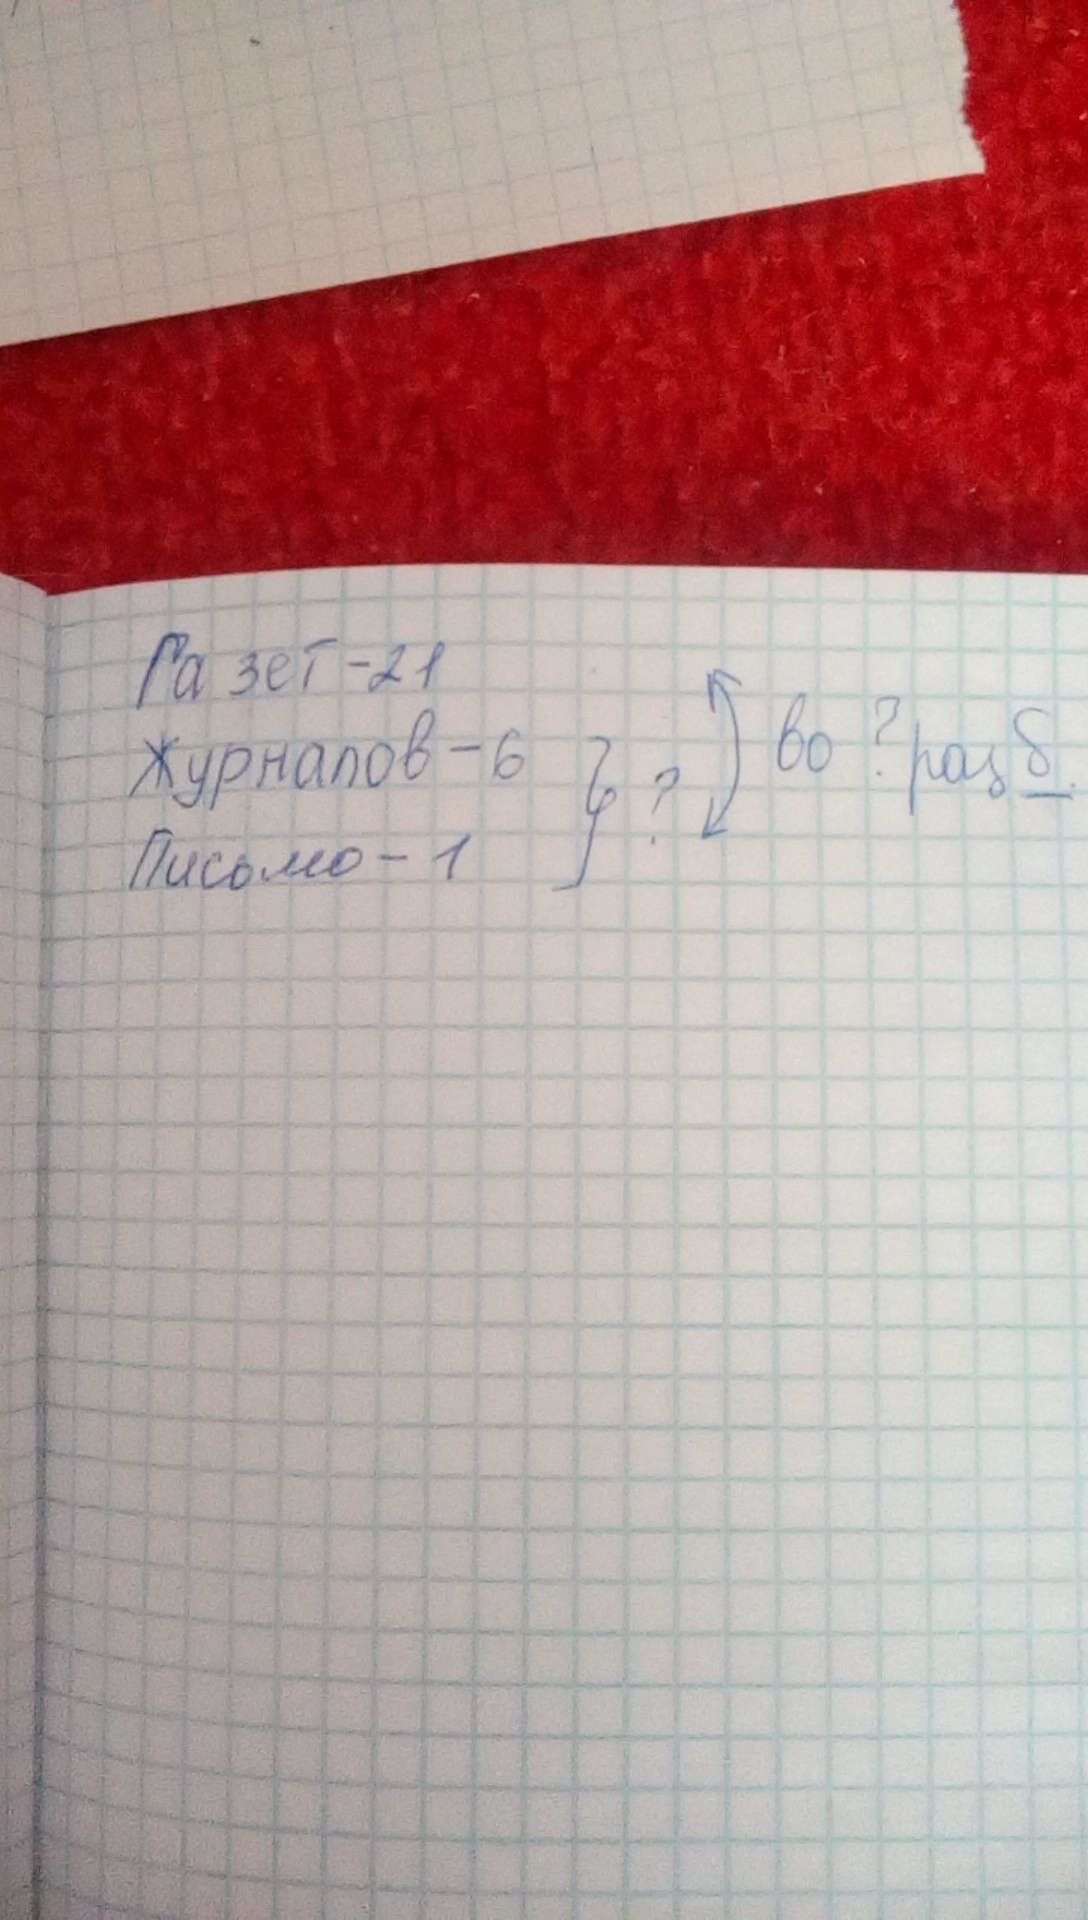 Газет-21
Журналов-6 } ? во ? раз б.
Письмо-1